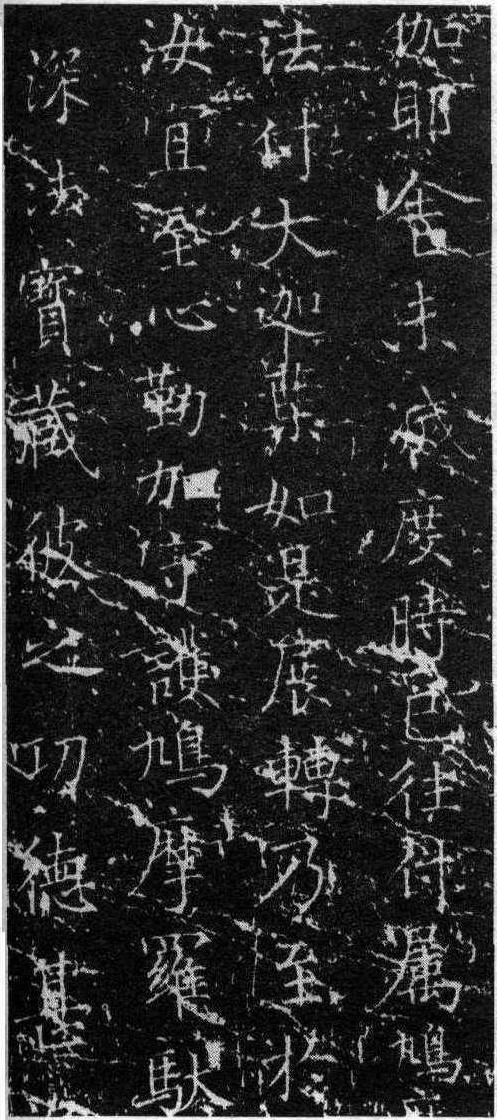 伽耶舍未滅度時已往付屬鳩
法付大迦葉如是展轉乃至於
汝且至心勤加守護鳩摩羅馱
深法寶藏彼之功德甚